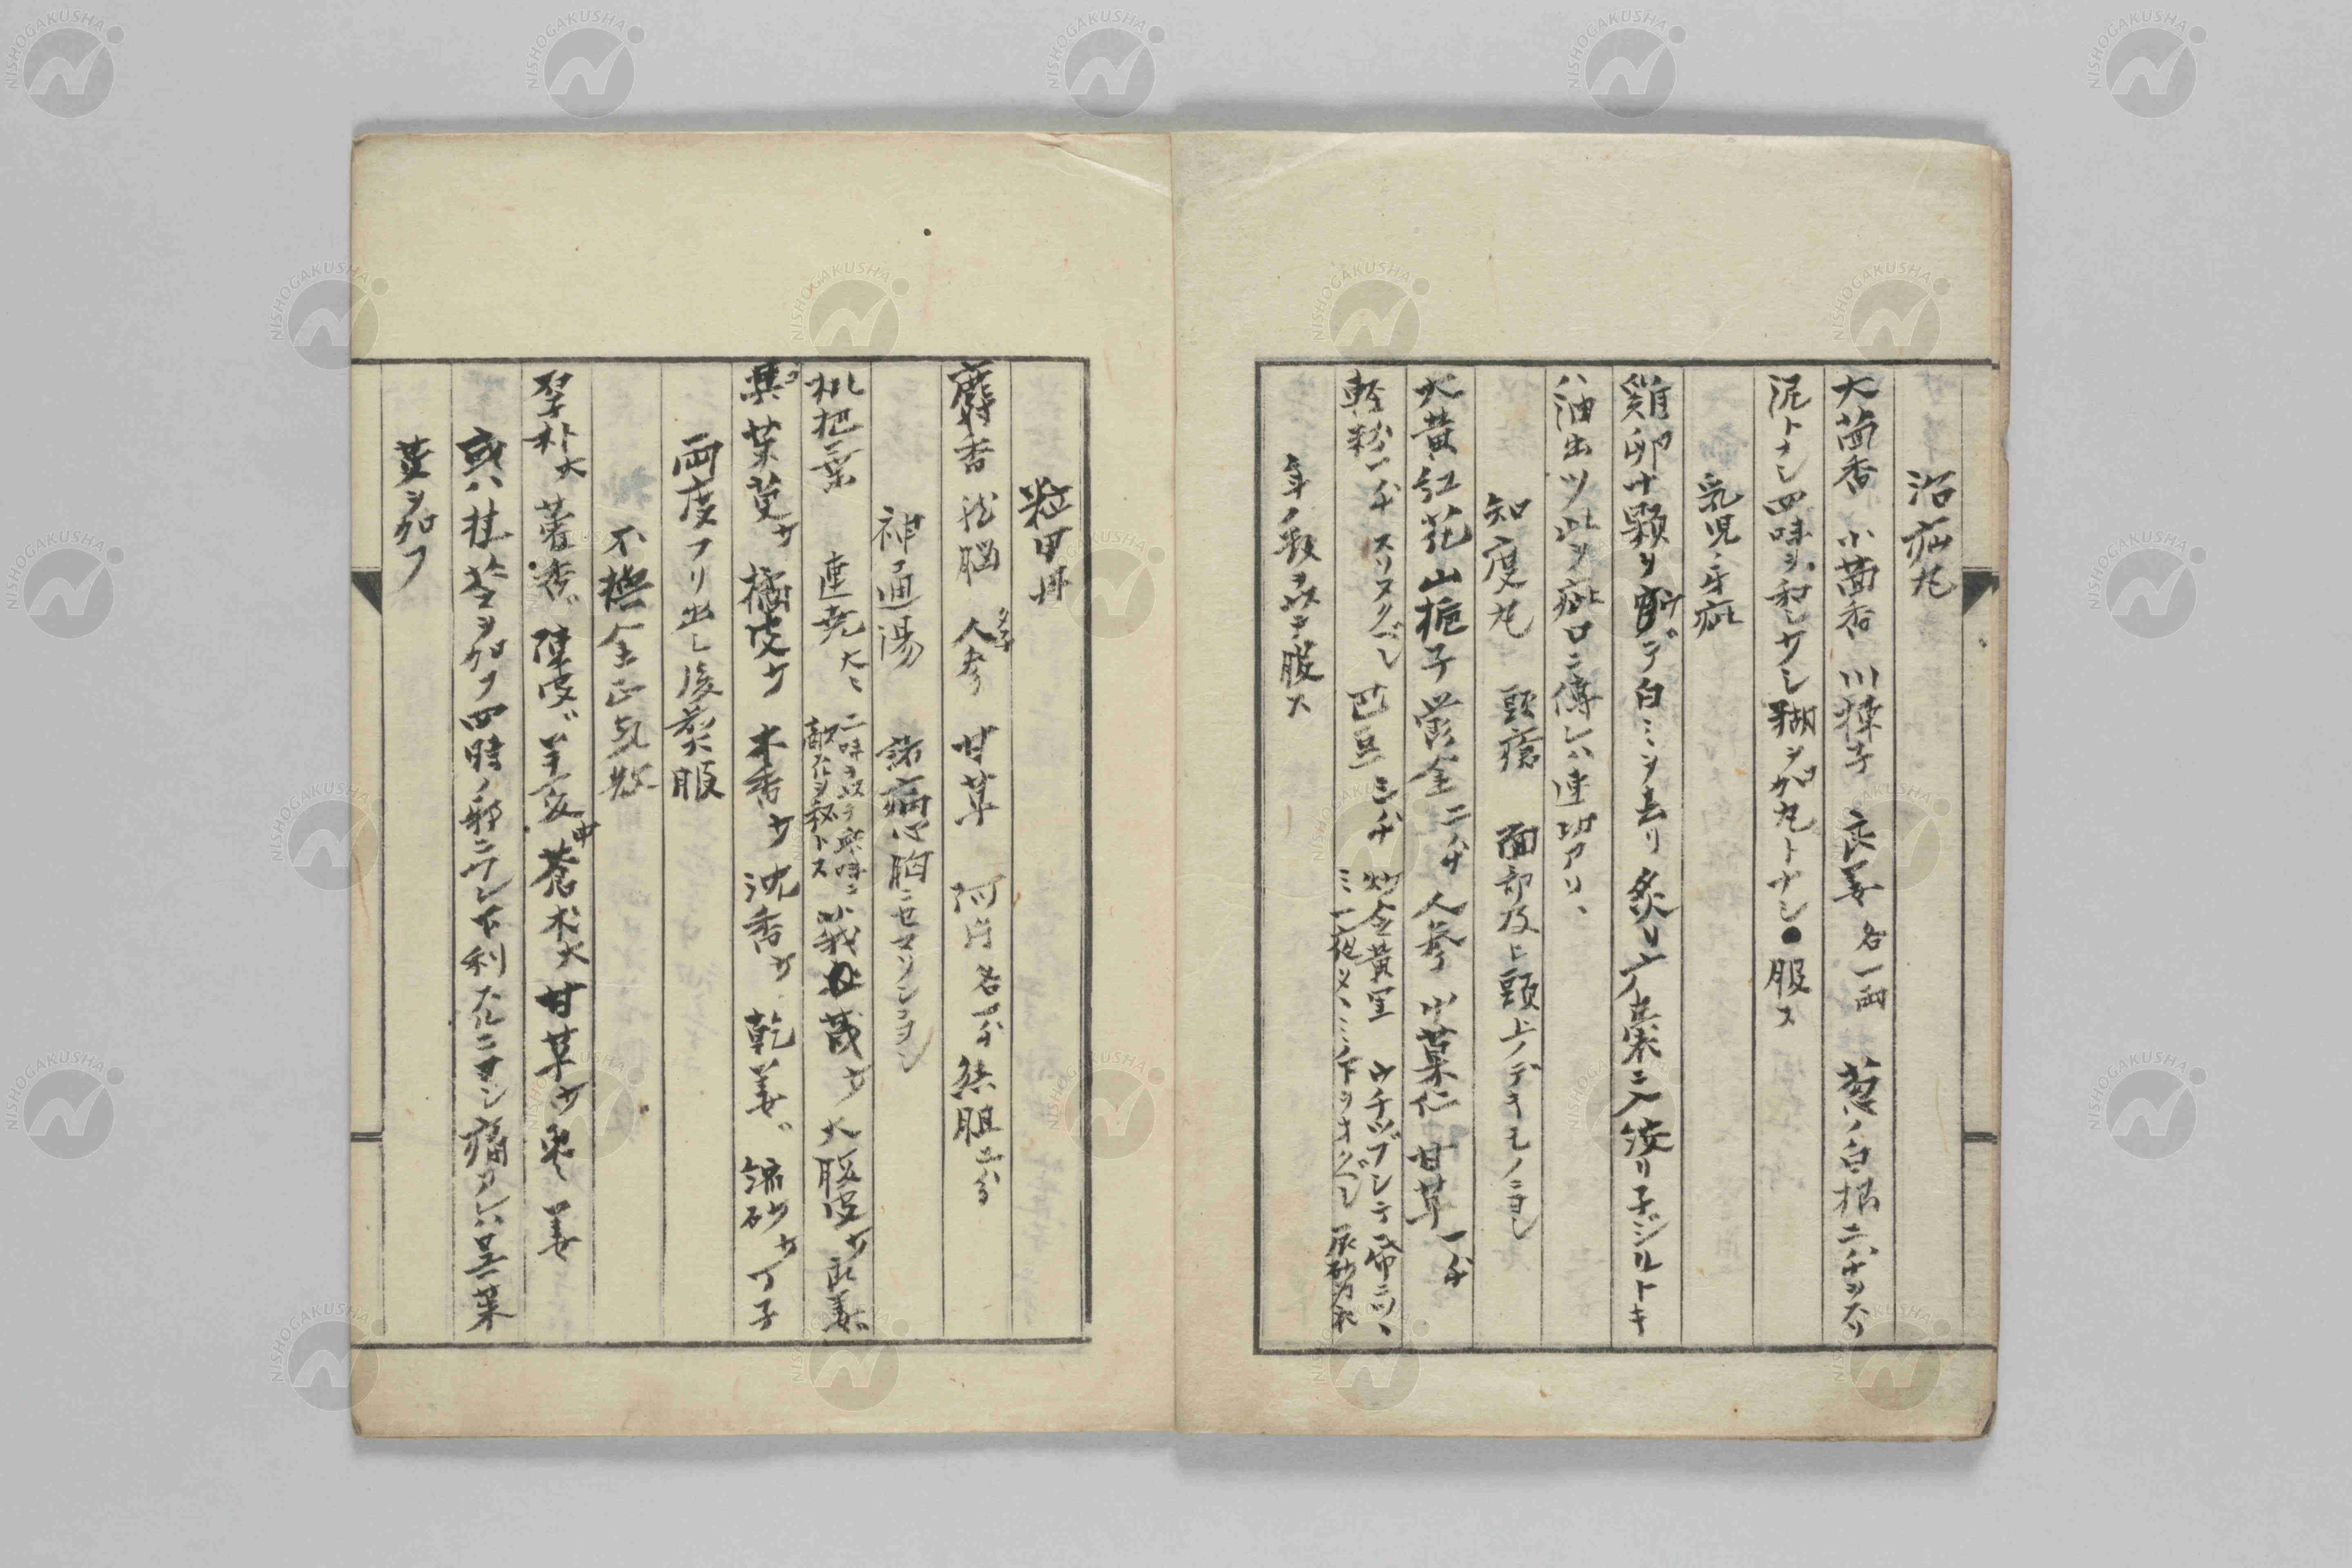 治疝丸
大茴香 小茴香 川楝子 良姜 各一両 葱ノ白根二八チヲスリ
泥トナシ四味ヲ和シサシ糊ヲ加丸トナシ●服ス
乳児ノ牙疳
雞卵十顆ヲ テ白ミヲ去リ炙リ 袋ニ入絞リ子ジルトキ
ハ油出ツ此ヲ疵口ニ傅レハ連功アリ、
知度丸 頭瘡 面部及ヒ頭上ノデキモノニヨシ
大黄 紅花 山梔子 欝金 二 人参 小菓仁 甘草 一
軽粉 一 スリヌクベシ 巴豆 三
炒令黄黒 ウチツブシテ帋ニツヽ
ミ一夜 ヲオクベシ 辰砂為衣
年ノ数ヲ以テ服ス
粒甲丹
麝香 龍脳 人参 甘草 阿片 各一 熊胆
神通湯 諸病心胸ニセマリシニヨシ
枇杷葉 連尭 大
二味ヲ以テ衆味ニ
敵スルヲ秘トス
莪 大腹皮 サ 良姜
呉茱萸 サ 橘皮 サ 木香 サ 沈香 サ 乾姜 縮砂 サ 丁子
両度フリ出し後煎服
不換金正気散
厚朴 大 藿香 陳皮 半夏 中 蒼朮 大 甘草 サ 棗 姜
或ハ桂苓ヲ加フ四時ノ邪ニアレ下利スルニヨシ痛アレハ呉茱
萸ヲ加フ
NISHOGAKUSHA